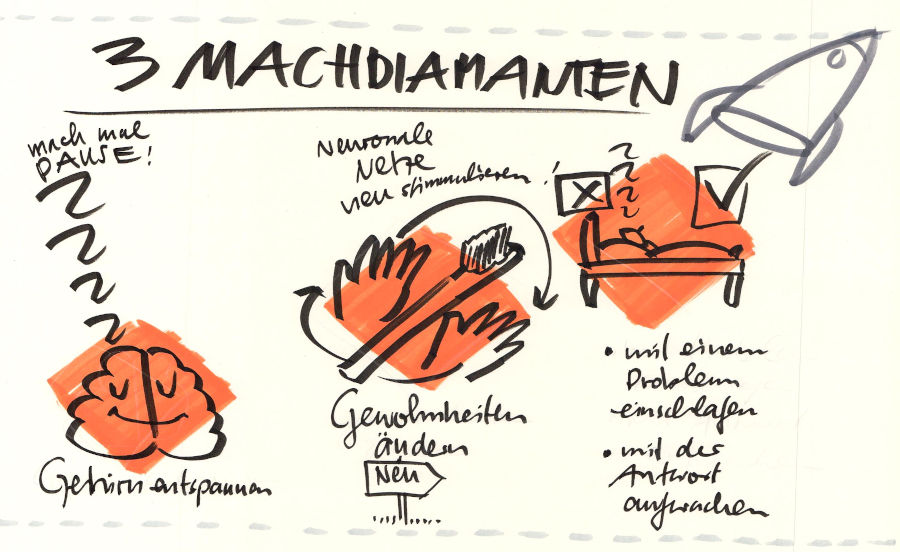 3 MACHDIAMANTEN
mach mal
PAUSE!
Z
Z
Z
Z
Gehirn entspannen
Neuronale
Netze
neu stimmulieren!
Gewohnheiten
ändern
Neu
Z
Z
Z
Z
• mit einem
Problem
einschlafen
• mit der
Antwort
aufwachen